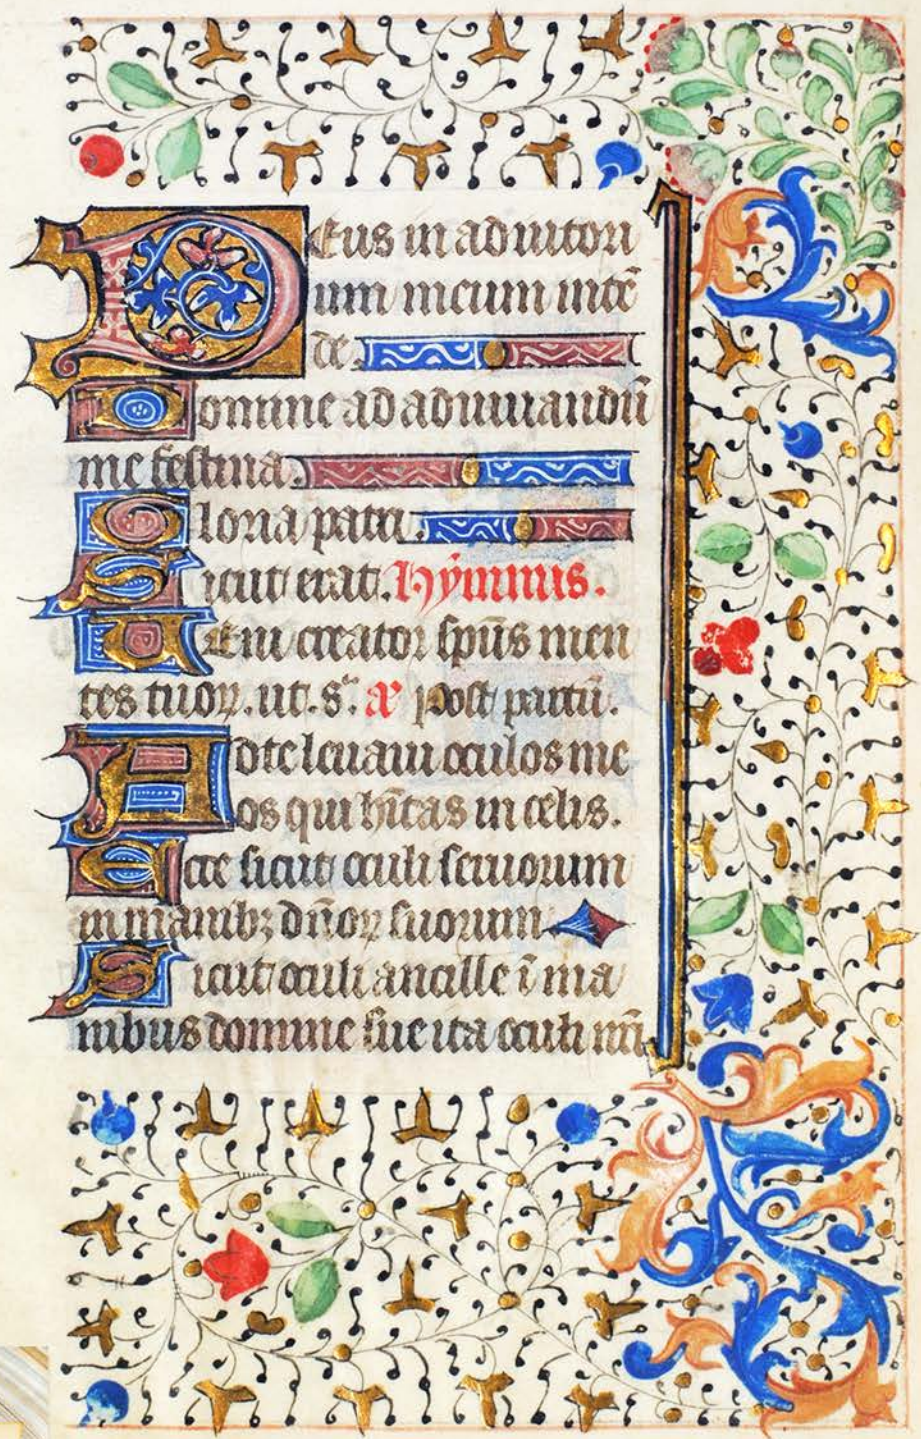 Deus in adiutori
um meum intē
de.
Domine ad adiuuandū
me festina.
Gloria patri.
Sicut erat. Hymnus.
Ueni creator sp̄us men
tes tuoꝝ. ut. s. añ post partū.
Ad te leuaui oculos me
os qui hītas in celis.
Ecce sicut oculi seruorum
in manibꝫ dn̄oꝝ suorum
Sicut oculi ancille ī ma
nibus domine sue ita oculi nr̄i